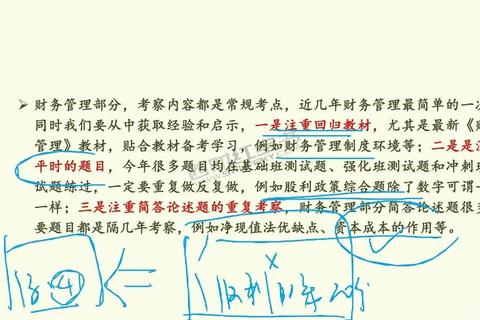 ➢ 财务管理部分，考察内容都是常规考点，近几年财务管理最简单的一次
同时我们要从中获取经验和启示，一是注重回归教材，尤其是最新《财
管理》教材，贴合教材备考学习，例如财务管理制度环境等；二是是注
平时的题目，今年很多题目均在基础班测试题、强化班测试题和冲刺班
试题练过，一定要重复做反复做，例如股利政策综合题除了数字可谓一
一样；三是注重简答论述题的重复考察，财务管理部分简答论述题很多
要题目都是隔几年考察，例如净现值法优缺点、资本成本的作用等。
股利